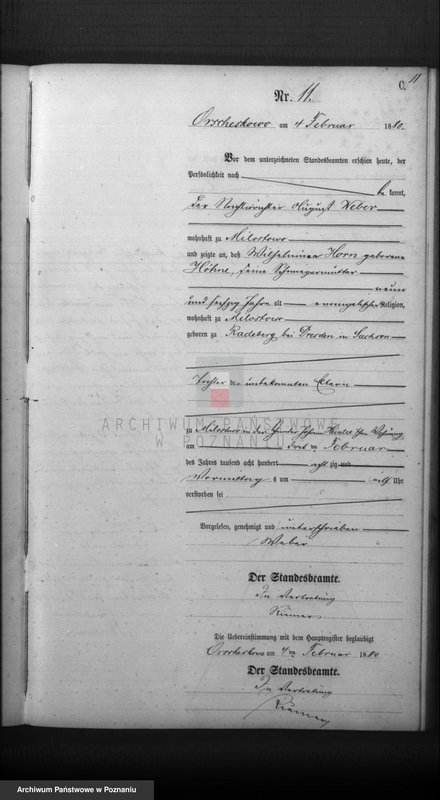 C.
11
Nr. 11.
Orscheskowo am 4 Februar 1880.
Vor dem unterzeichneten Standesbeamten erschien heute, der
Persönlichkeit nach
be kannt,
der Nachtwächter August Weber
wohnhaft zu Milostowo
und zeigte an, daß Wilhelmine Horn geborene
Höhne, seine Schwiegermutter
neun
und sechzig Jahre alt evangelischer Religion,
wohnhaft zu Milostowo
geboren zu Radeberg bei Dresden in Sachsen
Tochter der unbekannten Eltern
ARCHIWUM PAŃSTWOWE
W POZNANIU
zu Milostowo in der Wohnung
am drei ten Februar
des Jahres tausend acht hundert acht zig und
Vormittag s um elf Uhr
verstorben sei
Vorgelesen, genehmigt und unterschrieben
Weber
Der Standesbeamte.
In Vertretung
Die Uebereinstimmung mit dem Hauptregister beglaubigt
Orscheskowo am 4 ten Februar 1880
Der Standesbeamte.
In Vertretung
Archiwum Państwowe w Poznaniu